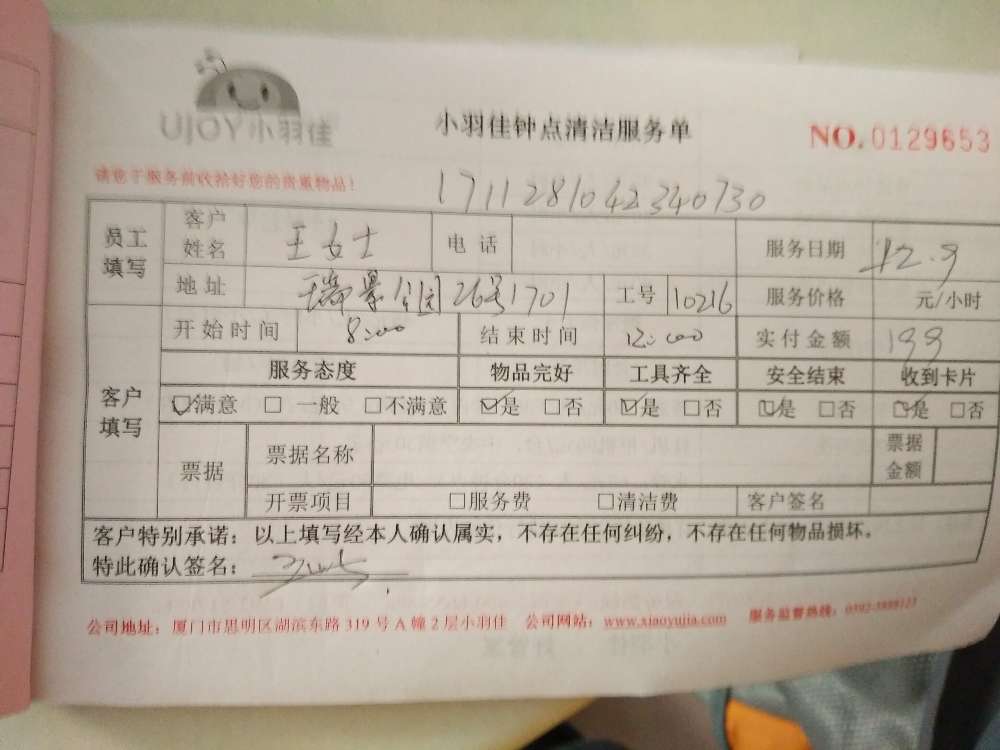 UJOY小羽佳
小羽佳钟点清洁服务单
NO.0129653
请您于服务前收拾好您的贵重物品!
1711281042340730
员工填写 客户姓名 王女士 电话 服务日期 12.9
地址 瑞景公园26号1701 工号 10216 服务价格 元/小时
客户填写 开始时间 8:00 结束时间 12:00 实付金额 199
服务态度 物品完好 工具齐全 安全结束 收到卡片
☑满意 □一般 □不满意 ☑是 □否 ☑是 □否 ☑是 □否 ☑是 □否
票据 票据名称 票据金额
开票项目 □服务费 □清洁费 客户签名
客户特别承诺：以上填写经本人确认属实，不存在任何纠纷，不存在任何物品损坏。
特此确认签名：
公司地址：厦门市思明区湖滨东路 319 号 A 幢 2 层小羽佳 公司网站：www.xiaoyujia.com 服务监督热线：